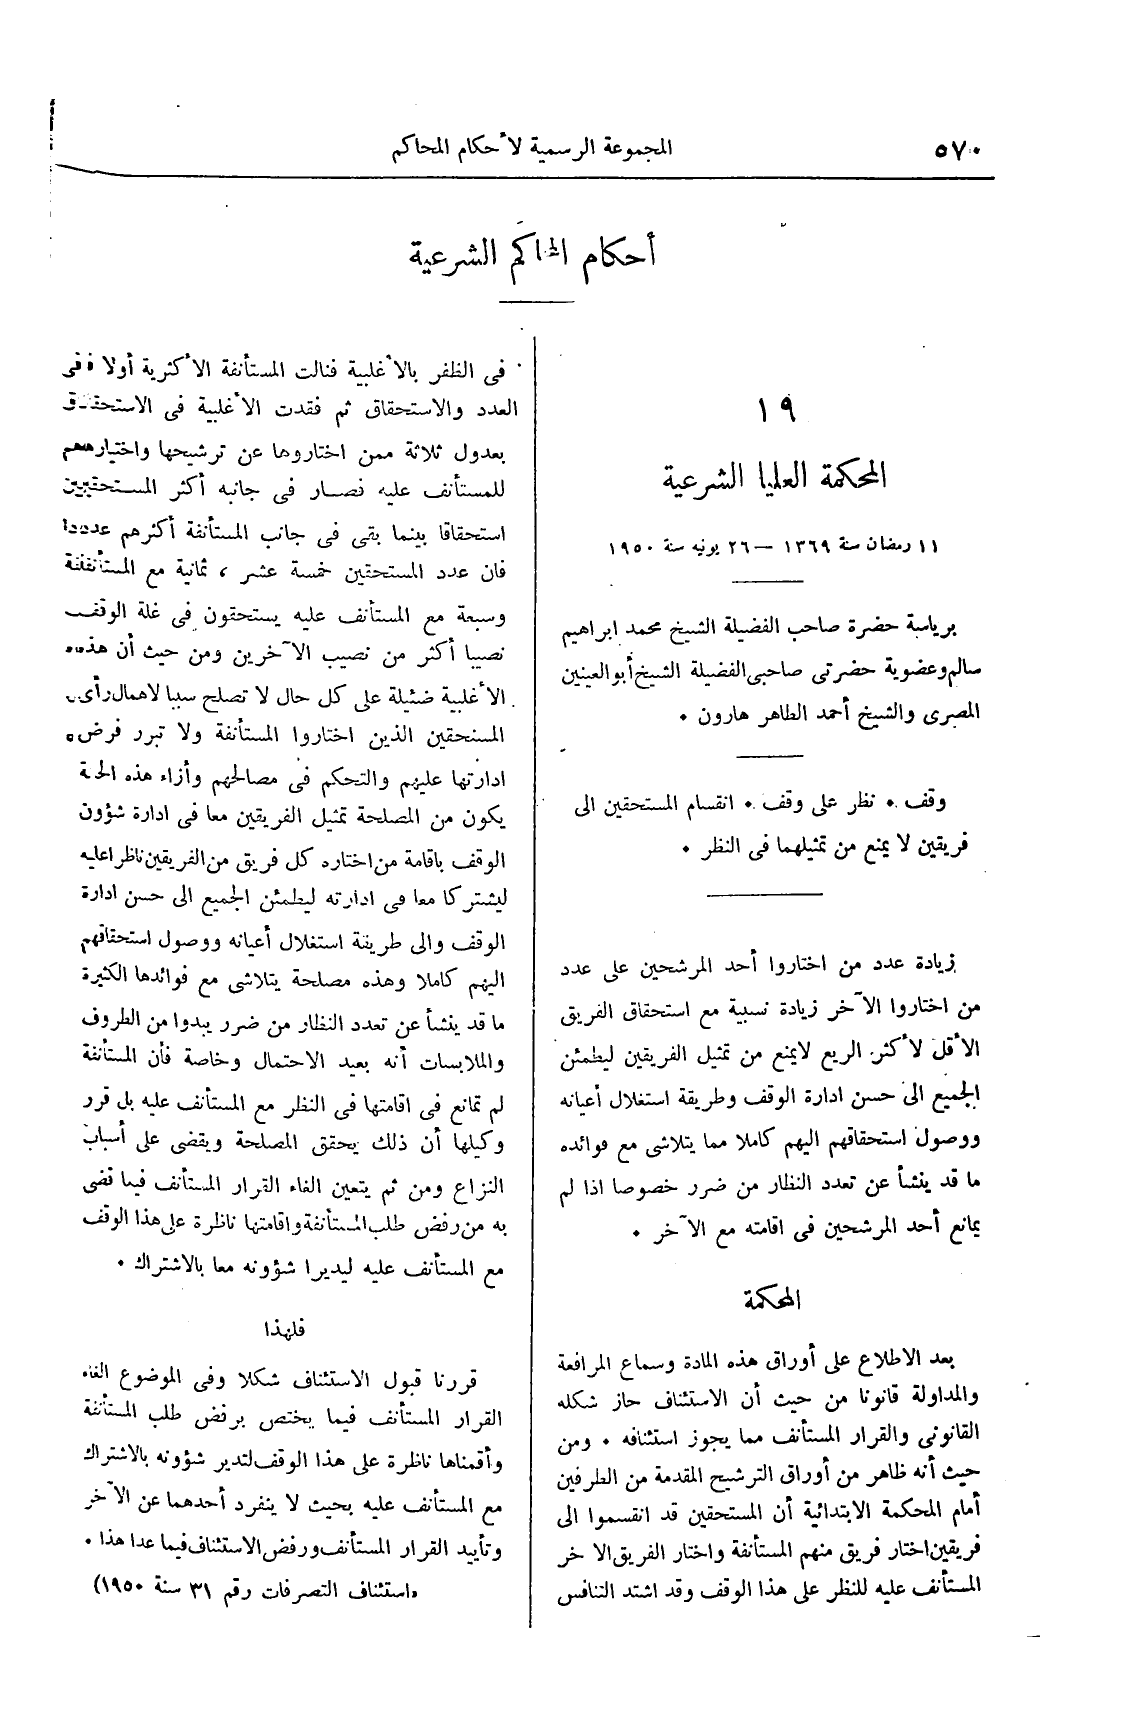 ٥٧٠
المجموعة الرسمية لأحكام المحاكم
أحكام المحاكم الشرعية
١٩
المحكمة العليا الشرعية
١١ رمضان سنة ١٣٦٩ — ٢٦ يونيه سنة ١٩٥٠
برياسة حضرة صاحب الفضيلة الشيخ محمد ابراهيم
سالم وعضوية حضرتى صاحبى الفضيلة الشيخ أبو العينين
المصرى والشيخ أحمد الطاهر هارون .
وقف . نظر على وقف . انقسام المستحقين الى
فريقين لا يمنع من تمثيلهما فى النظر .
زيادة عدد من اختاروا أحد المرشحين على عدد
من اختاروا الآخر زيادة نسبية مع استحقاق الفريق
الأقل لأكثر الريع لايمنع من تمثيل الفريقين ليطمئن
الجميع الى حسن ادارة الوقف وطريقة استغلال أعيانه
ووصول استحقاقهم اليهم كاملا مما يتلاشى مع فوائده
ما قد ينشأ عن تعدد النظار من ضرر خصوصا اذا لم
يمانع أحد المرشحين فى اقامته مع الآخر .
المحكمة
بعد الاطلاع على أوراق هذه المادة وسماع المرافعة
والمداولة قانونا من حيث أن الاستئناف حاز شكله
القانونى والقرار المستأنف مما يجوز استئنافه . ومن
حيث أنه ظاهر من أوراق الترشيح المقدمة من الطرفين
أمام المحكمة الابتدائية أن المستحقين قد انقسموا الى
فريقين اختار فريق منهم المستأنفة واختار الفريق الاخر
المستأنف عليه للنظر على هذا الوقف وقد اشتد التنافس
فى الظفر بالأغلبية فنالت المستأنفة الأكثرية أولا ففى
العدد والاستحقاق ثم فقدت الأغلبية فى الاستحقاق
بعدول ثلاثة ممن اختاروها عن ترشيحها واختيارهم
للمستأنف عليه فصار فى جانبه أكثر المستحقين
استحقاقا بينما بقى فى جانب المستأنفة أكثرهم عددا
فان عدد المستحقين خمسة عشر ، ثمانية مع المستأنفة
وسبعة مع المستأنف عليه يستحقون فى غلة الوقف
نصيبا أكثر من نصيب الآخرين ومن حيث أن هذه
الأغلبية ضئيلة على كل حال لا تصلح سببا لاهمال رأى
المستحقين الذين اختاروا المستأنفة ولا تبرر فرض
ادارتها عليهم والتحكم فى مصالحهم وأزاء هذه الحالة
يكون من المصلحة تمثيل الفريقين معا فى ادارة شؤون
الوقف باقامة من اختاره كل فريق من الفريقين ناظرا عليه
ليشتركا معا فى ادارته ليطمئن الجميع الى حسن ادارة
الوقف والى طريقة استغلال أعيانه ووصول استحقاقهم
اليهم كاملا وهذه مصلحة يتلاشى مع فوائدها الكثيرة
ما قد ينشأ عن تعدد النظار من ضرر يبدوا من الظروف
والملابسات أنه بعيد الاحتمال وخاصة فأن المستأنفة
لم تمانع فى اقامتها فى النظر مع المستأنف عليه بل قرر
وكيلها أن ذلك يحقق المصلحة ويقضى على أسباب
النزاع ومن ثم يتعين الغاء القرار المستأنف فيما قضى
به من رفض طلب المستأنفة واقامتها ناظرة على هذا الوقف
مع المستأنف عليه ليديرا شؤونه معا بالاشتراك .
فلهذا
قررنا قبول الاستئناف شكلا وفى الموضوع الغاء
القرار المستأنف فيما يختص برفض طلب المستأنفة
وأقمناها ناظرة على هذا الوقف لتدير شؤونه بالاشتراك
مع المستأنف عليه بحيث لا ينفرد أحدهما عن الآخر
وتأييد القرار المستأنف ورفض الاستئناف فيما عدا هذا .
(استئناف التصرفات رقم ٣١ سنة ١٩٥٠)